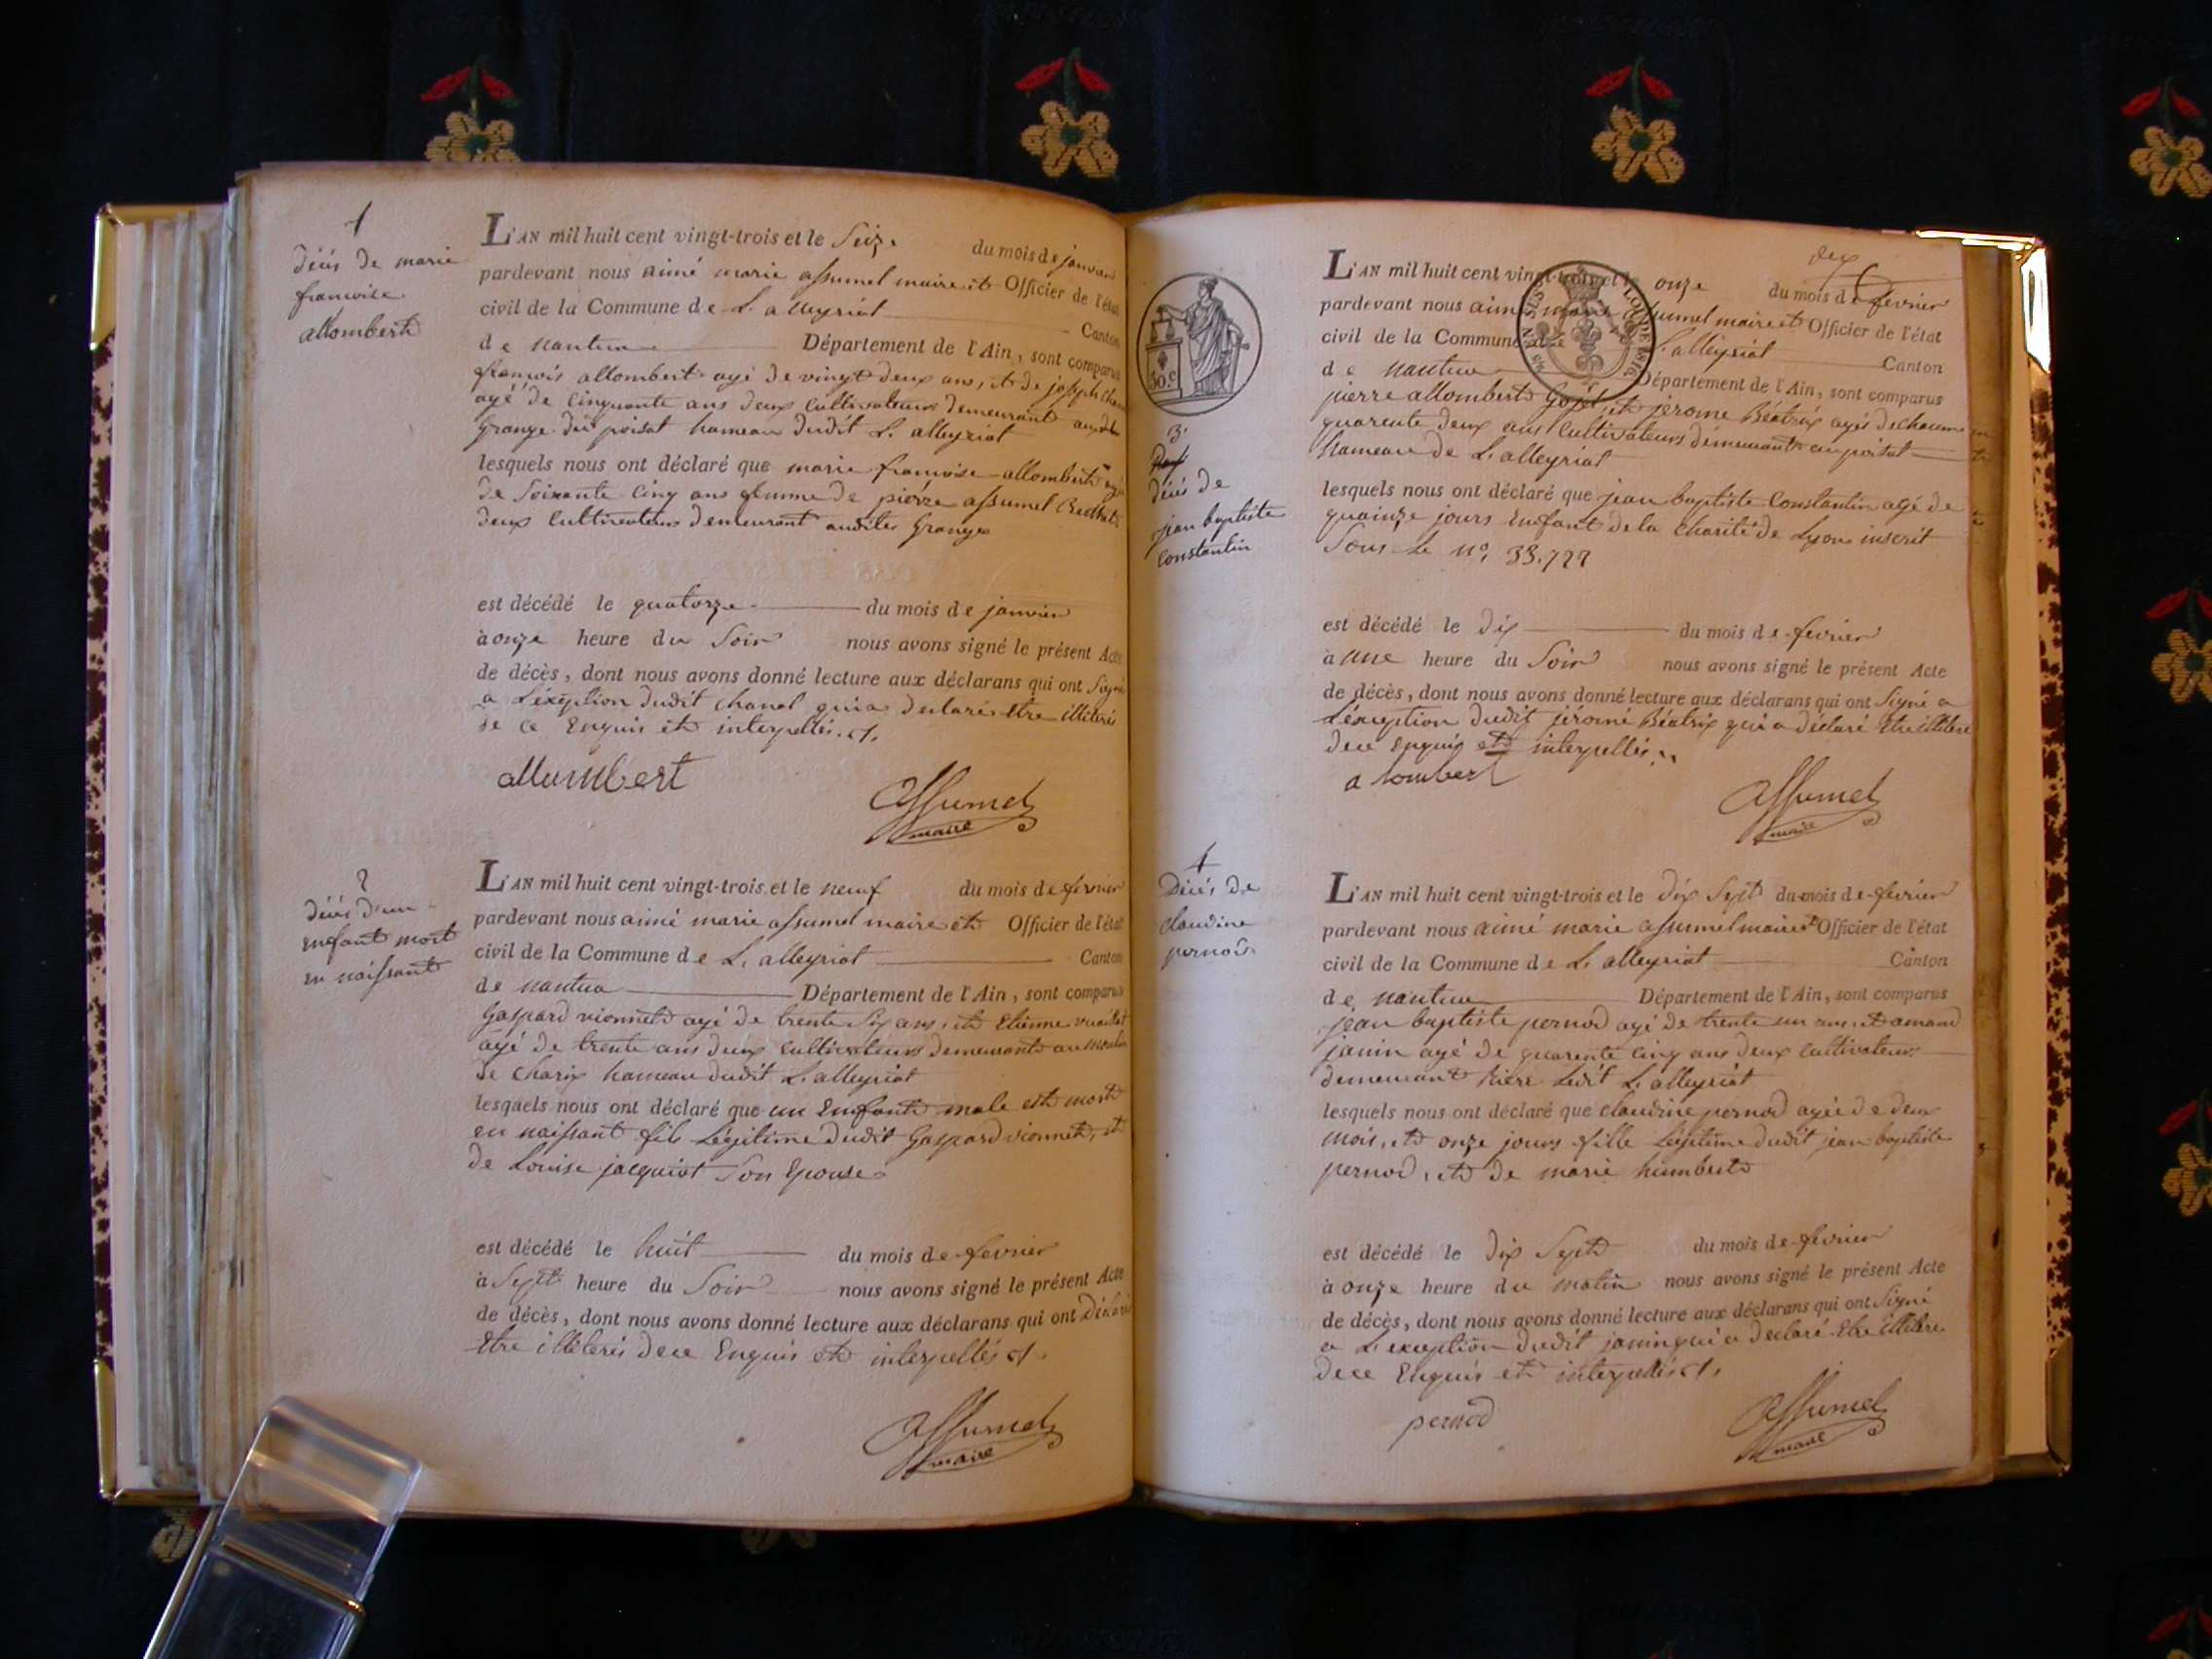 1
décès de marie
françoise
allombert
L'AN mil huit cent vingt-trois et le seize du mois de janvier
pardevant nous aimé marie assumel maire et Officier de l'état
civil de la Commune de L. alleyriat Canton
de nantua Département de l'Ain, sont comparus
françois allombert agé de vingt deux ans, et de joseph
agé de cinquante ans deux cultivateurs demeurant
Grange du poisat hameau dudit L. alleyriat
lesquels nous ont déclaré que marie françoise allombert agée
de soixante cinq ans femme de pierre assumel
deux cultivateurs demeurant audites Granges
est décédé le quatorze du mois de janvier
à onze heure du soir nous avons signé le présent Acte
de décès, dont nous avons donné lecture aux déclarans qui ont signé
a L'éxéption dudit chanal qui a declaré etre illiteré
de ce Enquis et interpellés.
allumbert
assumel
maire
2
décès d'un
enfant mort
en naissant
L'AN mil huit cent vingt-trois et le neuf du mois de fevrier
pardevant nous aimé marie assumel maire et Officier de l'état
civil de la Commune de L. alleyriat Canton
de nantua Département de l'Ain, sont comparus
Gaspard vionnet agé de trente six ans, et Etienne
agé de trente ans deux cultivateurs demeurant au moulin
de charix hameau dudit L. alleyriat
lesquels nous ont déclaré que un Enfant male est mort
en naissant fils Légitime dudit Gaspard vionnet, et
de Louise jacquiot son Epouse
est décédé le huit du mois de fevrier
à sept heure du soir nous avons signé le présent Acte
de décès, dont nous avons donné lecture aux déclarans qui ont déclaré
etre illiterés dece Enquis et interpellés
assumel
maire
30.c
3.
décès de
jean baptiste
constantin
L'AN mil huit cent vingt-trois et le onze du mois de fevrier
pardevant nous aimé marie assumel maire et Officier de l'état
civil de la Commune de L. alleyriat Canton
de nantua Département de l'Ain, sont comparus
pierre allombert et jerome Béatrix agés de chacun
quarente deux ans cultivateurs demeurants au poisat
hameau de L. alleyriat
lesquels nous ont déclaré que jean baptiste Constantin agé de
quainze jours Enfant de la charité de Lyon inscrit
sous le N°. 33.727
est décédé le dix du mois de fevrier
à une heure du soir nous avons signé le présent Acte
de décès, dont nous avons donné lecture aux déclarans qui ont signé a
L'éxception dudit jéromé Béatrix qui a déclaré etre illiteré
dece enquis et interpellés
a lombert
assumel
maire
4
Décés de
claudine
pernod
L'AN mil huit cent vingt-trois et le dix sept du mois de fevrier
pardevant nous aimé marie assumel maire et Officier de l'état
civil de la Commune de L. alleyriat Canton
de nantua Département de l'Ain, sont comparus
jean baptiste pernod agé de trente un ans, et amand
janin agé de quarente cinq ans deux cultivateurs
demeurant riere Ledit L. alleyriat
lesquels nous ont déclaré que claudine pernod agée de deux
mois, et onze jours fille Légitime dudit jean baptiste
pernod, et de marie humbert
est décédé le dix sept du mois de fevrier
à onze heure du matin nous avons signé le présent Acte
de décès, dont nous avons donné lecture aux déclarans qui ont signé
a L'exception dudit janin qui a declaré etre illiteré
dece Enquis et interpellés
pernod
assumel
maire